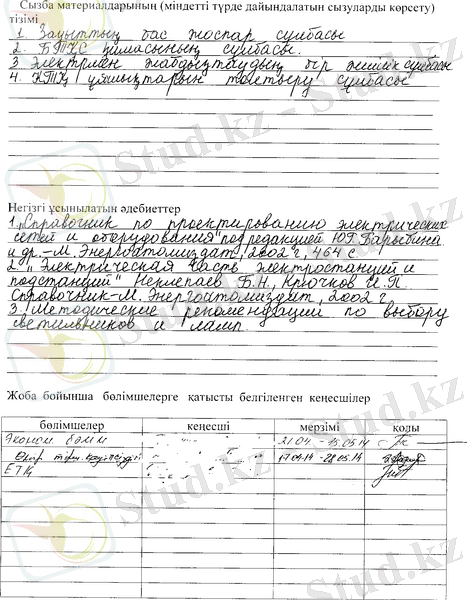 Сызба материалдарының (міндетті түрде дайындалатын сызуларды көрсету)
тізімі
1. Зауыттың бас жоспар сұлбасы
2. БТҚС қимасының сұлбасы.
3 Электрмен жабдықтаудың бір желілік сұлбасы
4. КТҚ ұяшықтарын толтыру сұлбасы
Негізгі ұсынылатын әдебиеттер
1 „Справочник по проектированию электрических
сетей и оборудования" под редакцией Ю.Г. Барыбина
и др. –М. Энергоатомиздат, 2002 г, 464 с
2. „Электрическая часть электростанций и
подстанций" Неклепаев Б.Н., Крючков И.П.
Справочник-М. Энергоатомиздат, 2002 г
3. Методические рекомендации по выбору
светильников и ламп
Жоба бойынша бөлімшелерге қатысты белгіленген кеңесшілер
бөлімшелер кеңесші мерзімі қолы
Эконом бөлім 21.04 - 15.05.14
Өмір тірш. қауіпсіздігі 17.04.14 - 28.05.14
ЕТҚ
Stud.kz
Stud.kz
Stud.kz
Stud.kz
Stud.kz